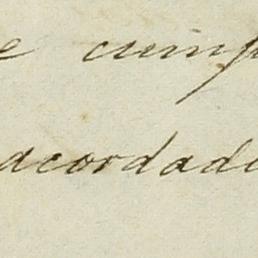 e cump
acordado